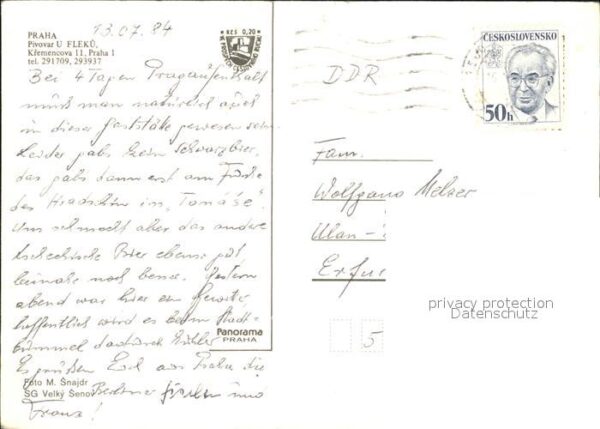 13.07.84
PRAHA
Pivovar U FLEKŮ,
Křemencova 11, Praha 1
tel. 291709, 293937
KčS 0,20
ČESKOSLOVENSKO
50h
DDR
Bei 4 Tagen Pragaufenthalt
muß man natürlich auch
in dieser Gaststätte gewesen sein
Leider gabs kein Schwarzbier,
das gabs dann erst am Fuße
des Hradschin im "Tomáše".
Uns schmeckt aber das andere
tschechische Bier ebenso gut
beinahe noch besser. Gestern
abend war hier ein Gewitter,
hoffentlich wird es beim Stadt-
bummel dadurch kühler
Es grüßen Euch aus Praha die
Berliner und
Franz!
Fam.
Wolfgang Melzer
Ulan-
Erfur
5
Panorama
PRAHA
Foto M. Šnajdr
SG Velký Šenov
privacy protection
Datenschutz